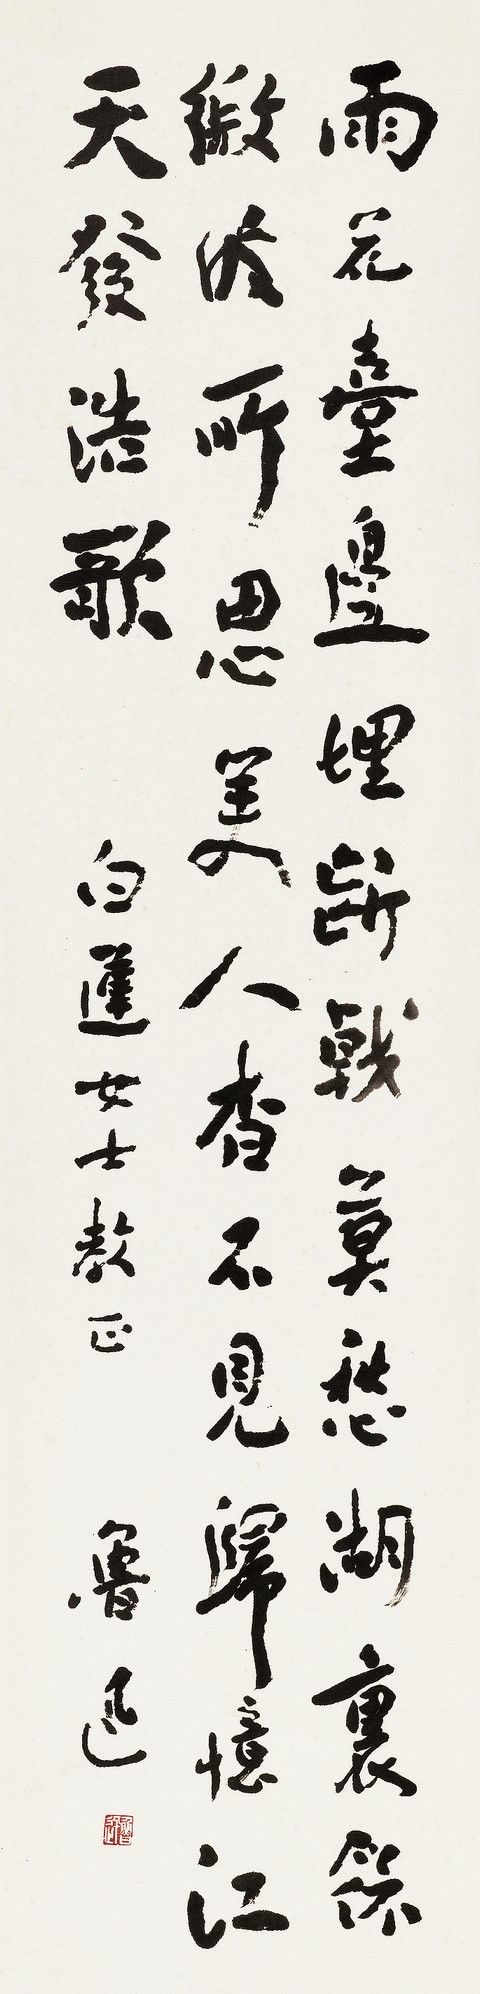 雨花臺邊埋斷戟莫愁湖裏餘
微波所思美人杳不見歸憶江
天發浩歌 白蓮女士教正 魯迅
魯迅